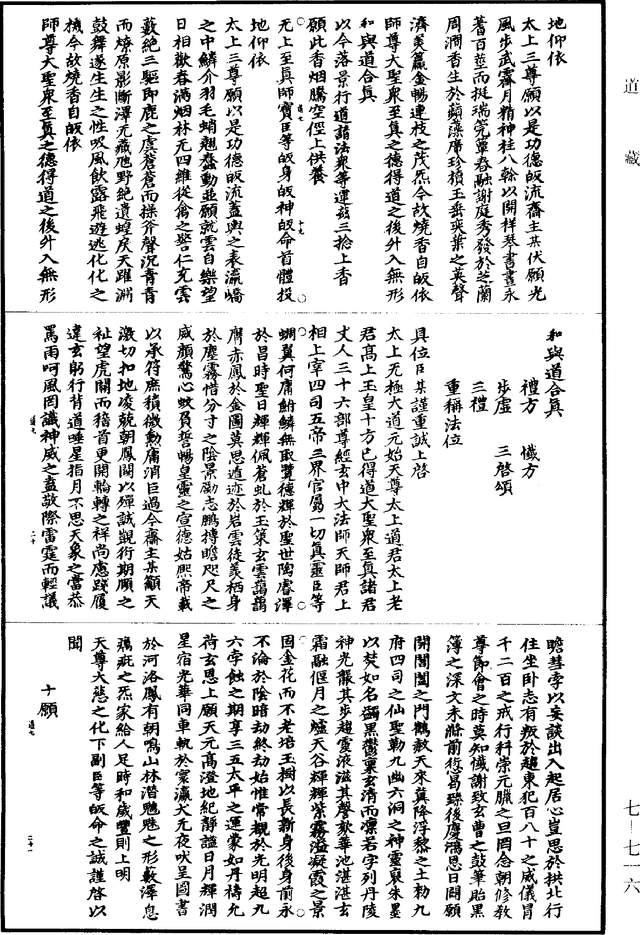 道藏
地仰依
太上三尊願以是功德皈流齋主某伏願光
風步武霽月精神柱八榦以開祥琴書晝永
蓍百莖而挺瑞筦簟春融謝庭秀發於芝蘭
周澗香生於蘋藻席珍櫝玉垂奕葉之英聲
濟美籯金暢連枝之茂炁今故燒香自皈依
師尊大聖衆至真之德得道之後外入無形
和與道合真
以今落景行道諸法衆等運茲三捻上香
願此香烟騰空徑上供養
无上至真師寶臣等皈身皈神皈命首體投
地仰依
太上三尊願以是功德皈流蓋輿之表瀛嶠
之中鱗介羽毛蛸翹蠢動並願就雲自樂望
日相歡春滿烟林无四維從禽之咎仁充雲
藪絕三驅即鹿之虞蒼蒼而操斧聲沉青青
而燎原影斷澤无藏虺野絕遺蝗戾天躍淵
鼓舞遂生生之性吸風飲露飛遊逃化化之
機今故燒香自皈依
師尊大聖衆至真之德得道之後外入無形
和與道合真
禮方 懺方
步虛 三啓頌
三禮
重稱法位
具位臣某謹重誠上啓
太上无極大道元始天尊太上道君太上老
君高上玉皇十方已得道大聖衆至真諸君
丈人三十六部尊經玄中大法師天師君上
相上宰四司五帝三界官屬一切真靈臣等
蜩翼何庸鮒鱗無取贊德輝於聖世陶睿澤
於昌時聖日輝輝佩蒼虬於玉策玄雲藹藹
膺赤鳳於金圖莫思遁迹於岩雲徒羡栖身
於塵霧惜分寸之陰景勵志鵬摶瞻咫尺之
威顏驚心蚊負誓暢皇靈之宣德姑熙帝載
以承符庶積微勳庸消巨過今齋主某籲天
激切扣地凌兢朝鳳闕以殫誠覬衍期頤之
祉望虎關而稽首更開輪轉之祥尚慮踐履
違玄躬行背道唾星指月不思天象之當恭
罵雨呵風罔識神威之盍敬際雷霆而輕議
瞻彗孛以妄談出入起居心豈思於拱北行
住坐卧志有叛於趨東犯百八十之威儀冐
千二百之戒行科崇元臘之旦罔念朝修教
尊節會之時莫知懺謝致玄曹之鼓筆貽黑
簿之深文未滌前愆曷臻後慶鴻恩日開願
開閶闔之門鶴赦天來冀降浮黎之土勑九
府四司之仙聖勒九幽六洞之神靈裒朱墨
以焚如名蠲黑鬱稟玄清而湛若字列丹陵
神光龎其步趨靈液滋其謦欬華池湛湛玄
霜融偃月之爐天谷輝輝紫霧溢凝霞之景
固金花而不老培玉樹以長新身後身前永
不淪於陰暗劫終劫始惟常覩於光明超九
六孛蝕之期享三五太平之運蒙如丹禱允
荷玄恩上願天元髙澄地紀靜謐日月輝潤
星宿光華同車軌於寰瀛犬无夜吠呈圖書
於河洛鳳有朝鳴山林潛魑魅之形藪澤息
癘疵之炁家給人足時和歲豐則上明
天尊大慈之化下副臣等皈命之誠謹啓以
聞
十願
七—七一六